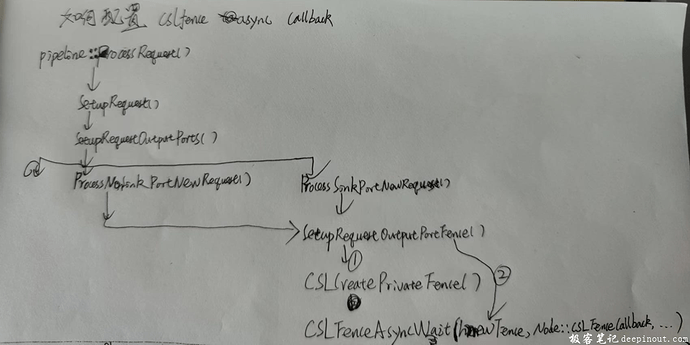 如何配置 cslfence async callback
pipeline::ProcessRequest()
SetupRequest()
SetupRequestOutputPorts()
ProcessNonSinkPortNewRequest()
ProcessSinkPortNewRequest()
SetupRequestOutputPortFence()
①
②
CSLCreatePrivateFence()
CSLFenceAsyncWait(hnewFence, Node::CSLFenceCallback, ...)
极客笔记deepinout.com